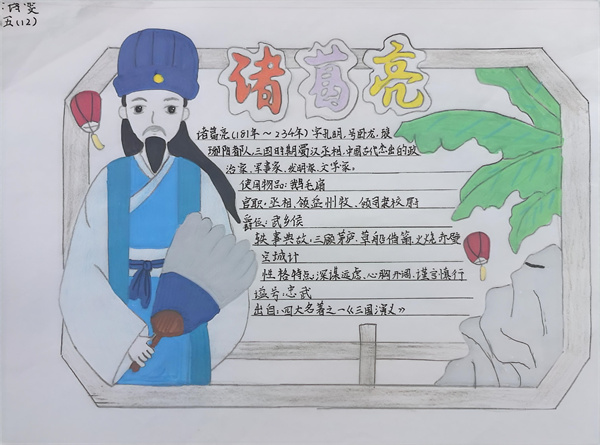 五(12)
诸葛亮
诸葛亮(181年～234年)字孔明,号卧龙,琅
琊阳都人,三国时期蜀汉丞相,中国古代杰出的政
治家、军事家、发明家、文学家。
使用物品:鹅毛扇
官职:丞相、领益州牧、领司隶校尉
爵位:武乡侯
轶事典故:三顾茅庐 草船借箭 火烧赤壁
空城计
性格特点:深谋远虑、心胸开阔、谨言慎行
谥号:忠武
出自:四大名著之一《三国演义》